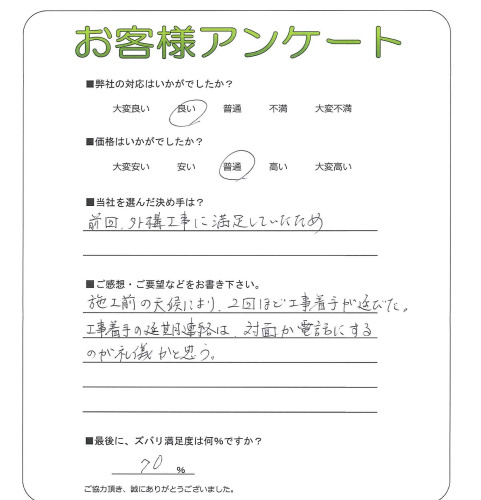 お客様アンケート
■弊社の対応はいかがでしたか？
大変良い 良い 普通 不満 大変不満
■価格はいかがでしたか？
大変安い 安い 普通 高い 大変高い
■当社を選んだ決め手は？
前回、外構工事に満足していたため
■ご感想・ご要望などをお書き下さい。
施工前の天候により、2回ほど工事着手が延びた。
工事着手の延期連絡は、対面か電話にする
のが礼儀かと思う。
■最後に、ズバリ満足度は何％ですか？
70 %
ご協力頂き、誠にありがとうございました。